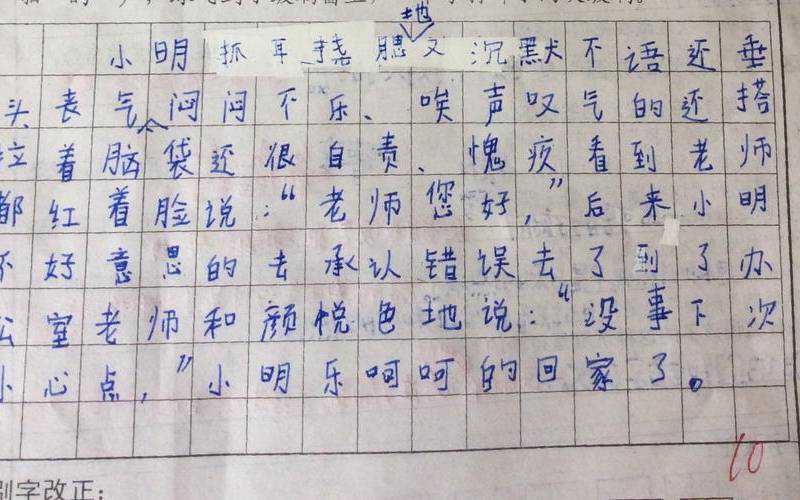 地
小明抓耳挠腮又沉默不语还垂
头表气闷闷不乐、唉声叹气的还搭
拉着脑袋还很自责、愧疚看到老师
都红着脸说：“老师您好，”后来小明
不好意思的去承认错误去了到了办
公室老师和颜悦色地说：“没事下次
小心点，”小明乐呵呵的回家了。
10
别字改正：